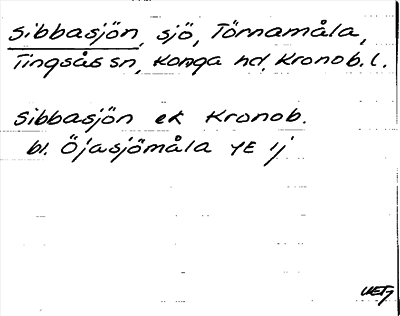 Sibbasjön, sjö, Törnamåla,
Tingsås sn, Konga hd, Kronob. l.
Sibbasjön ek Kronob.
bl. Öjasjömåla YE ij